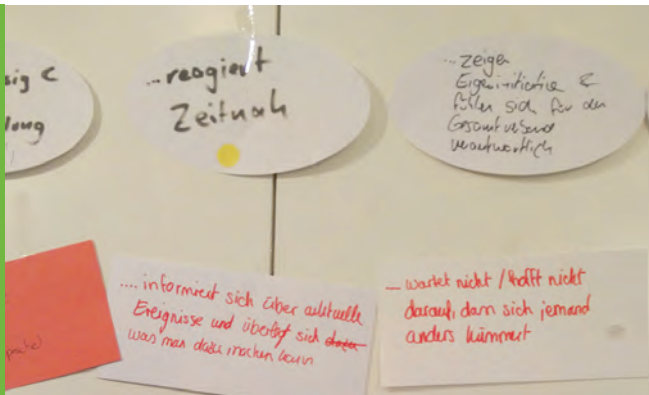 sig &
lung
...reagiert
Zeitnah
...zeigen
Eigeninitiative &
fühlen sich für den
Gesamtverband
verantwortlich
.... informiert sich über aktuelle
Ereignisse und überlegt sich
was man dazu machen kann
... wartet nicht / hofft nicht
darauf, dass sich jemand
anders kümmert